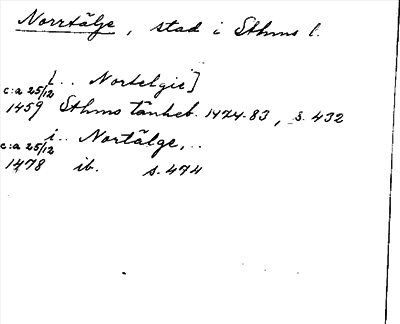 Norrtälje, stad i Sthms l.
[.. Nortelgie]
c:a 25/12
1459 Sthms tänkeb. 1474-83, s. 432
i.. Nortälge,..
c:a 25/12
1478 ib. s. 474